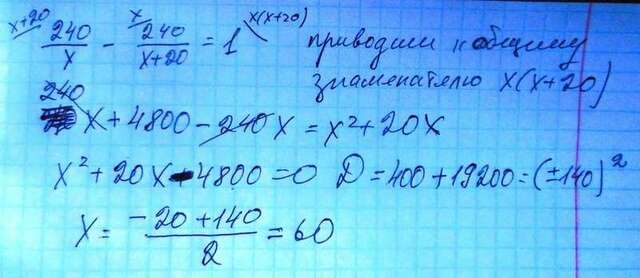 x+20 240/x - x 240/x+20 = 1 x(x+20) приводим к общему
знаменателю x(x+20)
240x+4800-240x=x²+20x
x²+20x-4800=0 D=400+19200=(±140)²
x= -20+140/2 =60